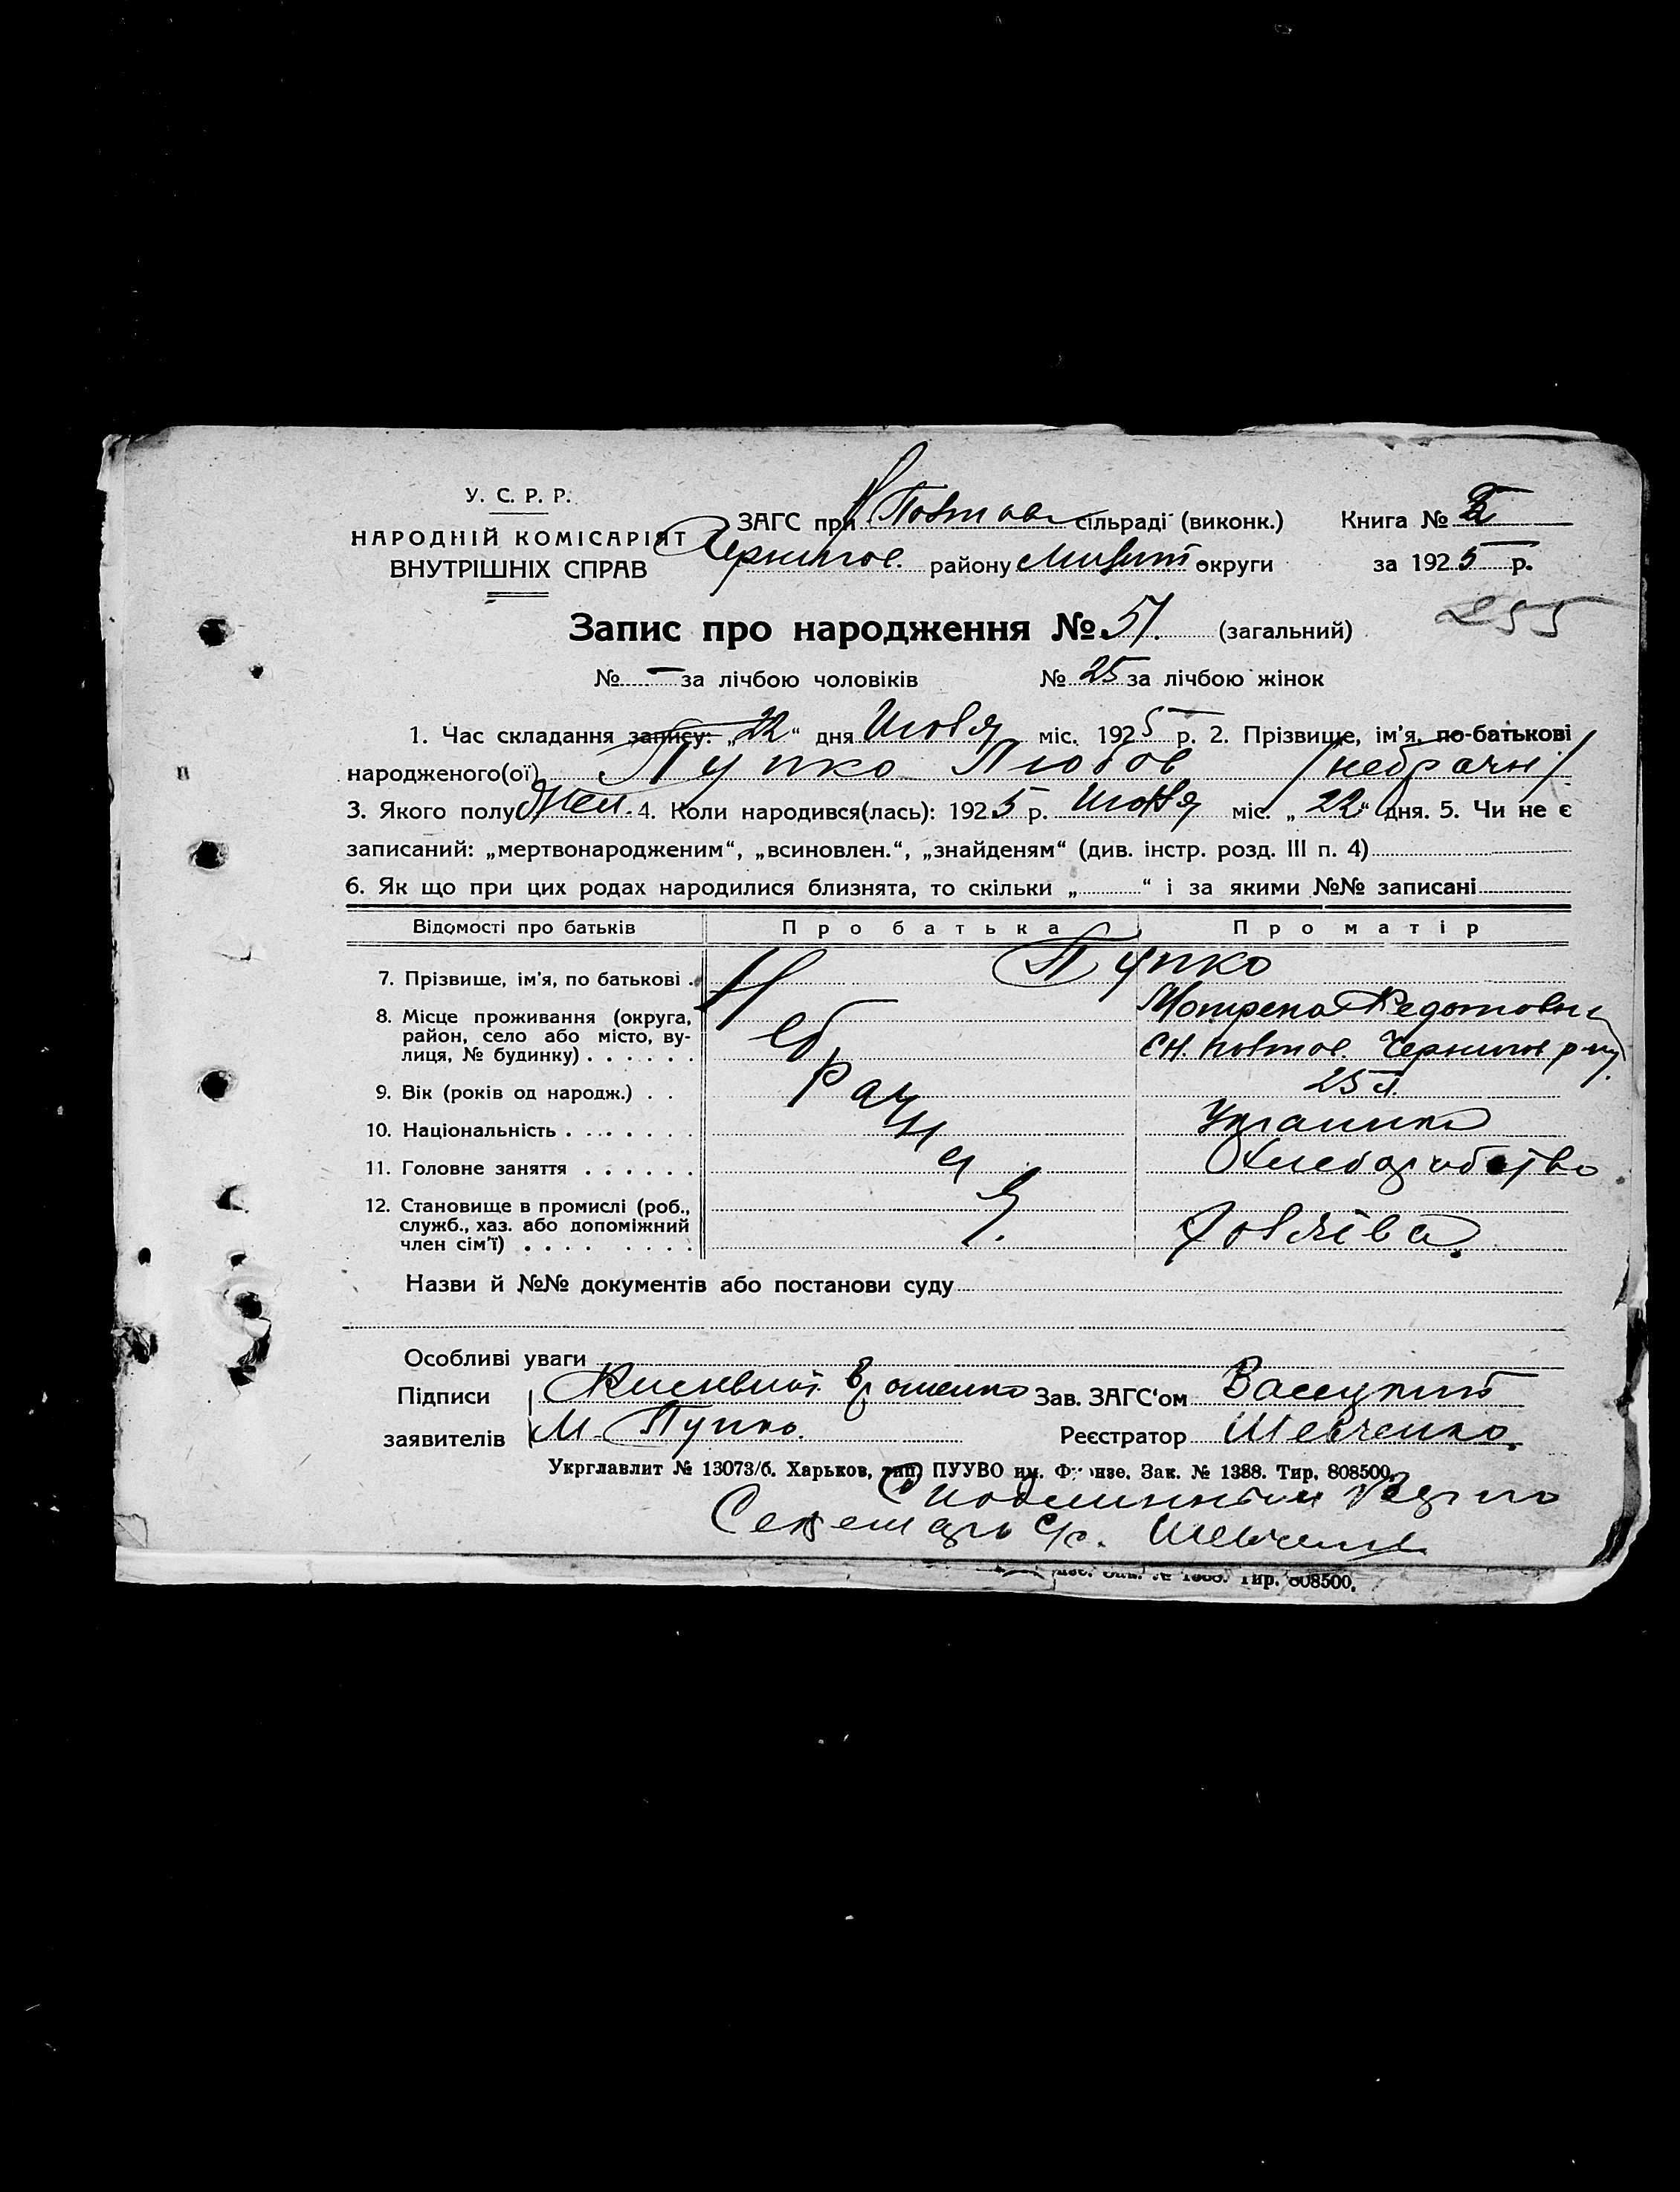 У. С. Р. Р.
НАРОДНІЙ КОМІСАРІЯТ
ВНУТРІШНІХ СПРАВ
ЗАГС при Н Повтав сільраді (виконк.)
Книга № II
Чернигов. району Мивит округи
за 1925 р.
255
Запис про народження № 51. (загальний)
№ – за лічбою чоловіків № 25 за лічбою жінок
1. Час складання запису: „22“ дня Июня міс. 1925 р. 2. Прізвище, ім’я, по-батькові
народженого(ої) Пупко Любов /небрачн/
3. Якого полу Жен. 4. Коли народився(лась): 1925 р. Июня міс. „22“ дня. 5. Чи не є
записаний: „мертвонародженим“, „всиновлен.“, „знайденям“ (див. інстр. розд. III п. 4)
6. Як що при цих родах народилися близнята, то скільки „ “ і за якими №№ записані
Відомості про батьків Про батька Про матір
7. Прізвище, ім’я, по батькові . Пупко
Мотрена Федотовн
8. Місце проживання (округа,
район, село або місто, ву-
лиця, № будинку) . . . . . .
Повтов. Чернигов р-ну
9. Вік (років од народж.) . . 25 л.
10. Національність . . . . . . . Украинка
11. Головне заняття . . . . . . Хлеборобство
12. Становище в промислі (роб.,
служб., хаз. або допоміжний
член сім’ї) . . . . . . . .
Небрачная
Назви й №№ документів або постанови суду
Особливі уваги
Підписи
заявителів
М. Пупко.
Зав. ЗАГС‘ом
Реєстратор Шевченко.
Укрглавлит № 13073/б. Харьков, тип. ПУУВО им. Фрунзе. Зак. № 1388. Тир. 808500.
С подлинным верно
Секретарь с/с. Шевченко
Зак. № 1388. Тир. 808500.